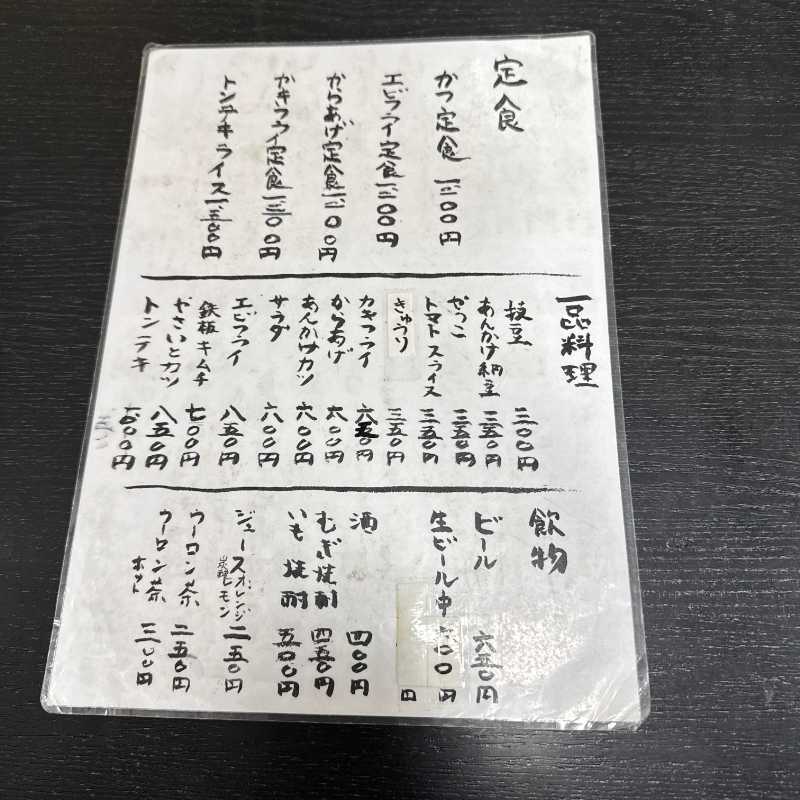 定食
かつ定食 一二〇〇円
エビフライ定食 一二〇〇円
からあげ定食 一二〇〇円
かきフライ定食 一三〇〇円
トンテキライス 一、五〇〇円
一品料理
枝豆 三〇〇円
あんかけ納豆 三五〇円
やっこ 三五〇円
トマトスライス 三五〇円
きゅうり 三五〇円
カキフライ 円
からあげ 六〇〇円
あんかけカツ 六〇〇円
サラダ 六〇〇円
エビフライ 八五〇円
鉄板キムチ 七〇〇円
やさいとカツ 八五〇円
トンテキ 円
飲物
ビール 六五〇円
生ビール中 円
円
酒 四〇〇円
むぎ焼酎 四五〇円
いも焼酎 五〇〇円
ジュース オレンジ 炭酸レモン 二五〇円
ウーロン茶 二五〇円
ウーロン茶 ホット 三〇〇円